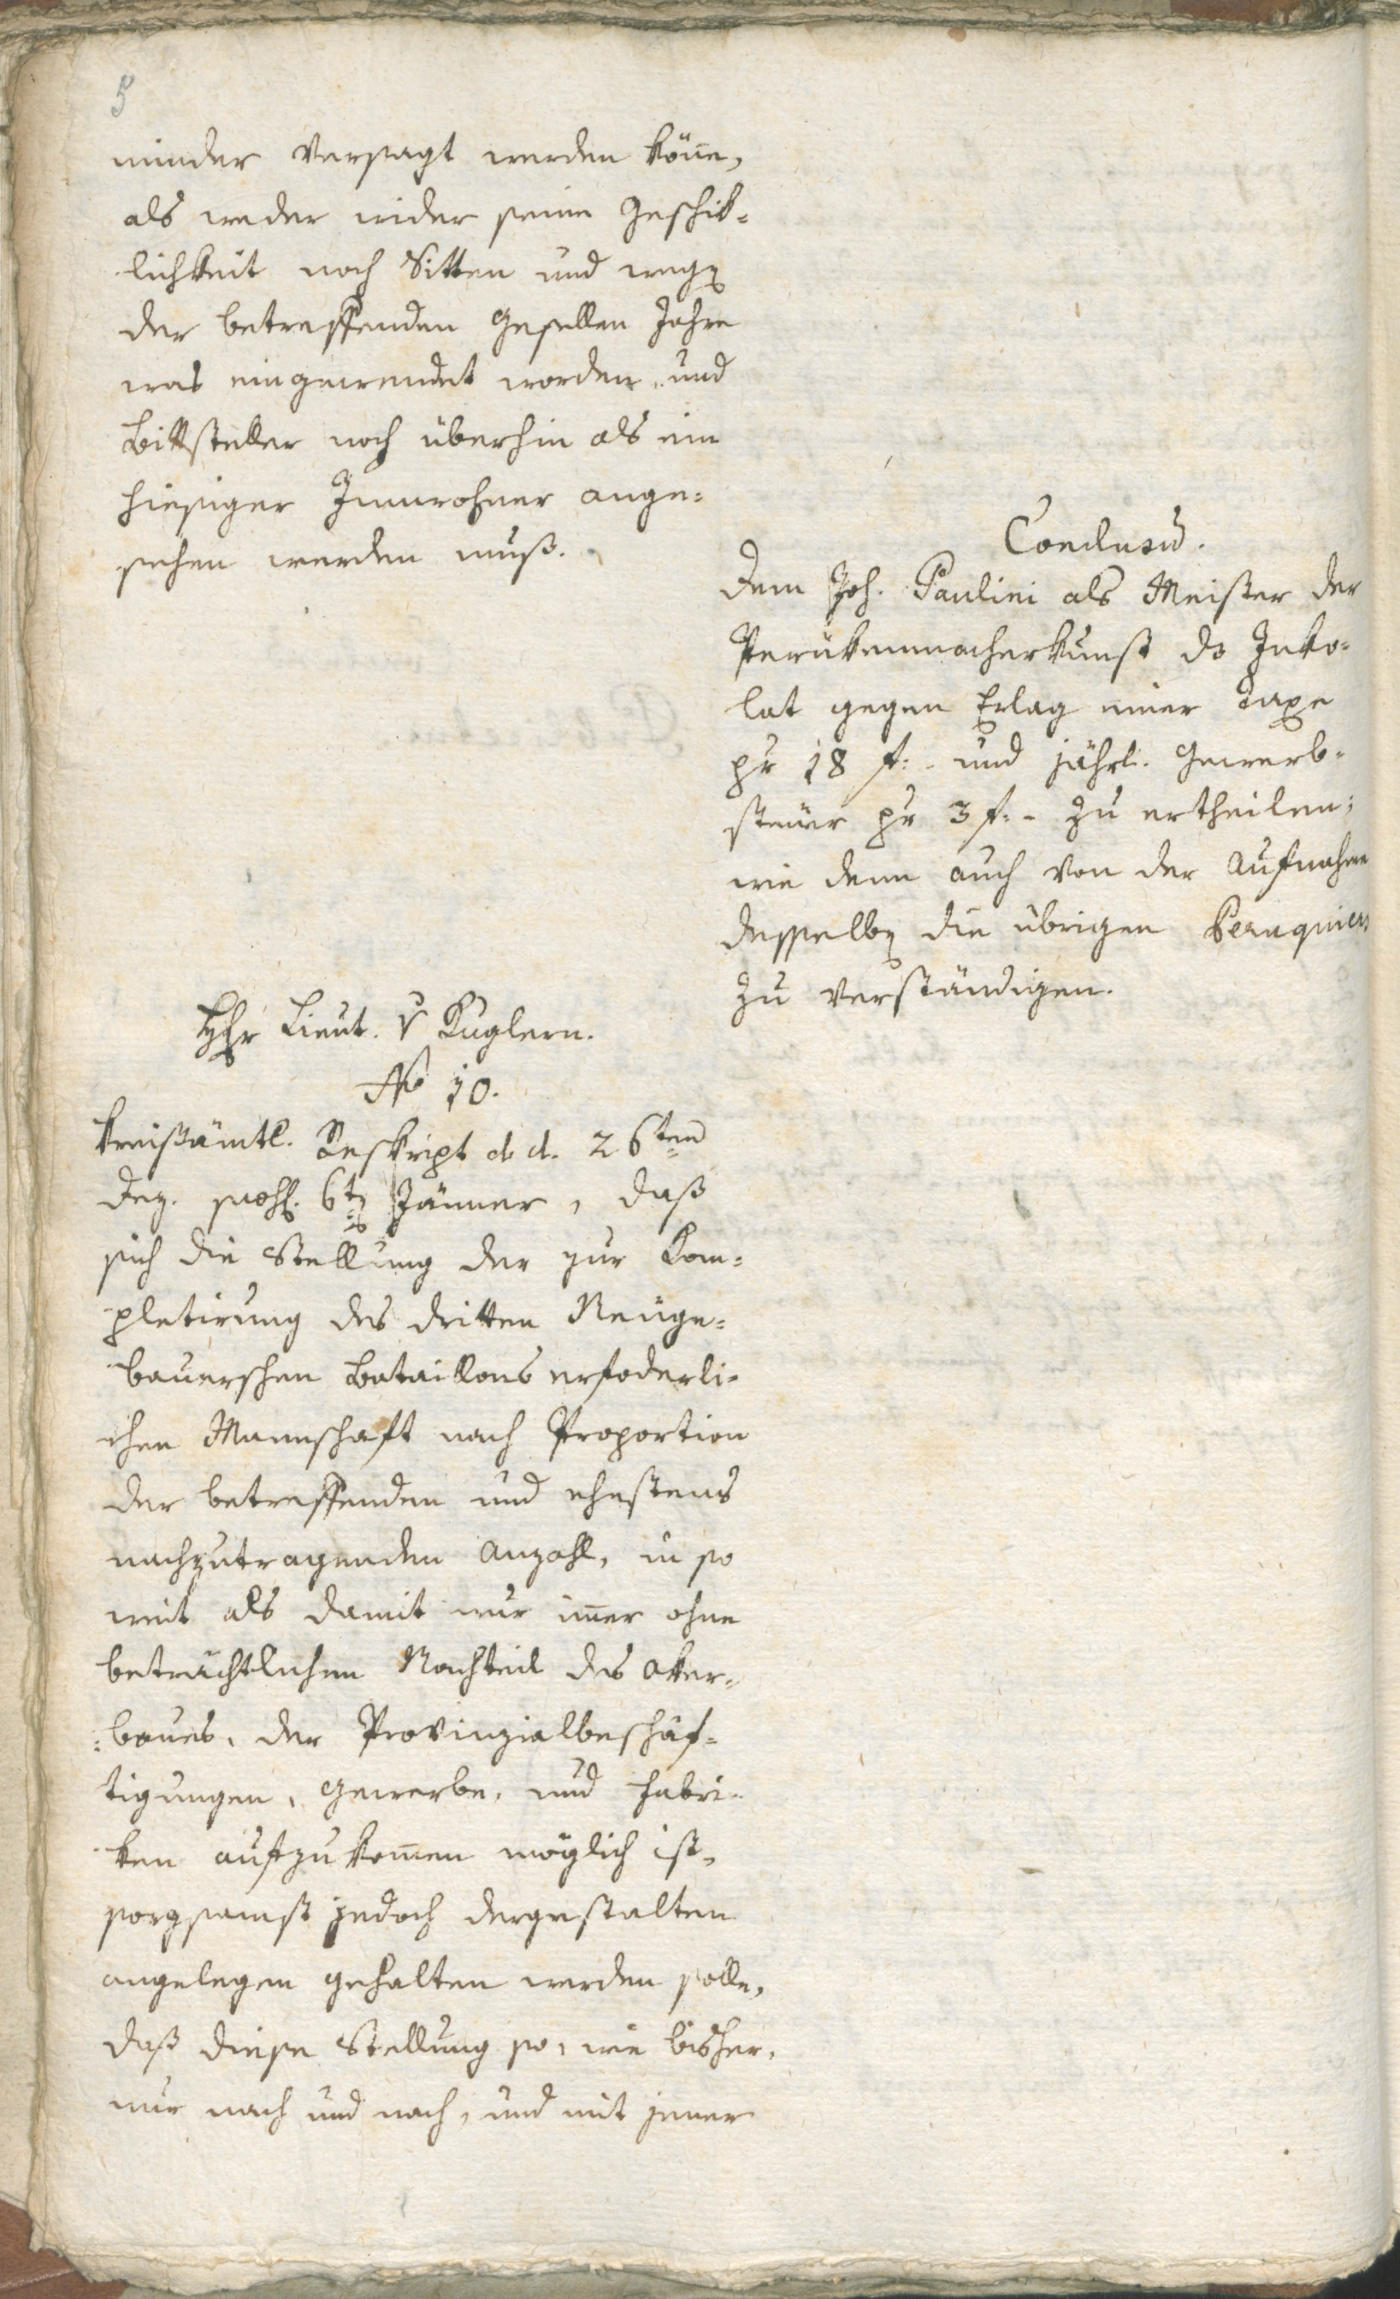 5
minder versagt werden köne,
als weder wider seine Geschik=
lichkeit noch Sitten und wegen
der betreffenden Gesellen Jahre
was eingewendet worden, und
Bittsteller noch überhin als ein
hiesiger Innwohner ange=
sehen werden muß.
Conclusum.
Dem Joh. Paulini als Meister der
Perükenmacherkunst das Inko=
lat gegen Erlag einer Taxe
pr 18 f:- und jährl. Gewerb=
steüer pr 3 f:- zu ertheilen;
wie denn auch von der Aufnahme
desselben die übrigen Peruquiers
zu verständigen.
Hr Lieut. v Kuglern.
No 10.
Kreißämtl. Reskript d. d. 26ten
Dez. 6ten Jänner, daß
sich die Stellung der zur Kom=
pletirung des dritten Neüge=
bauerschen Bataillons erfoderli=
chen Mannschaft nach Proportion
der betreffenden und ehestens
nachzutragenden Anzahl, in so
weit als damit nur imer ohne
beträchtlichen Nachteil des Aker=
=baues, der Provinzialbeschäf=
tigungen, Gewerbe, und Fabri=
ken aufzukomen möglich ist,
sorgsamst jedoch dergestalten
angelegen gehalten werden solle,
daß diese Stellung so, wie bisher,
nur nach und nach, und mit jener